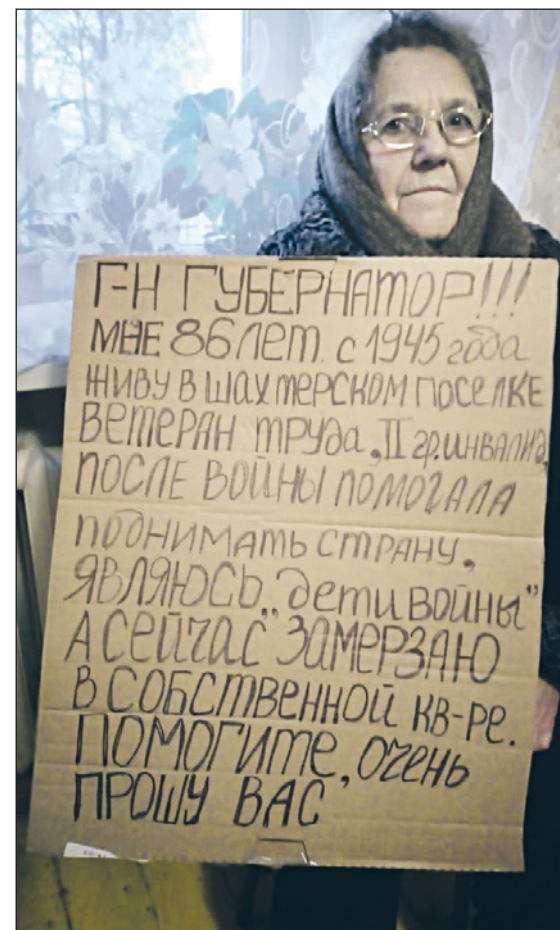 Г-Н ГУБЕРНАТОР!!!
МНЕ 86 лет. с 1945 года
живу в шахтерском поселке
ВЕТЕРАН труда, II гр. инвалид,
после войны помогала
поднимать страну,
являюсь "дети войны"
А сейчас замерзаю
в собственной кв-ре.
Помогите, очень
прошу ВАС